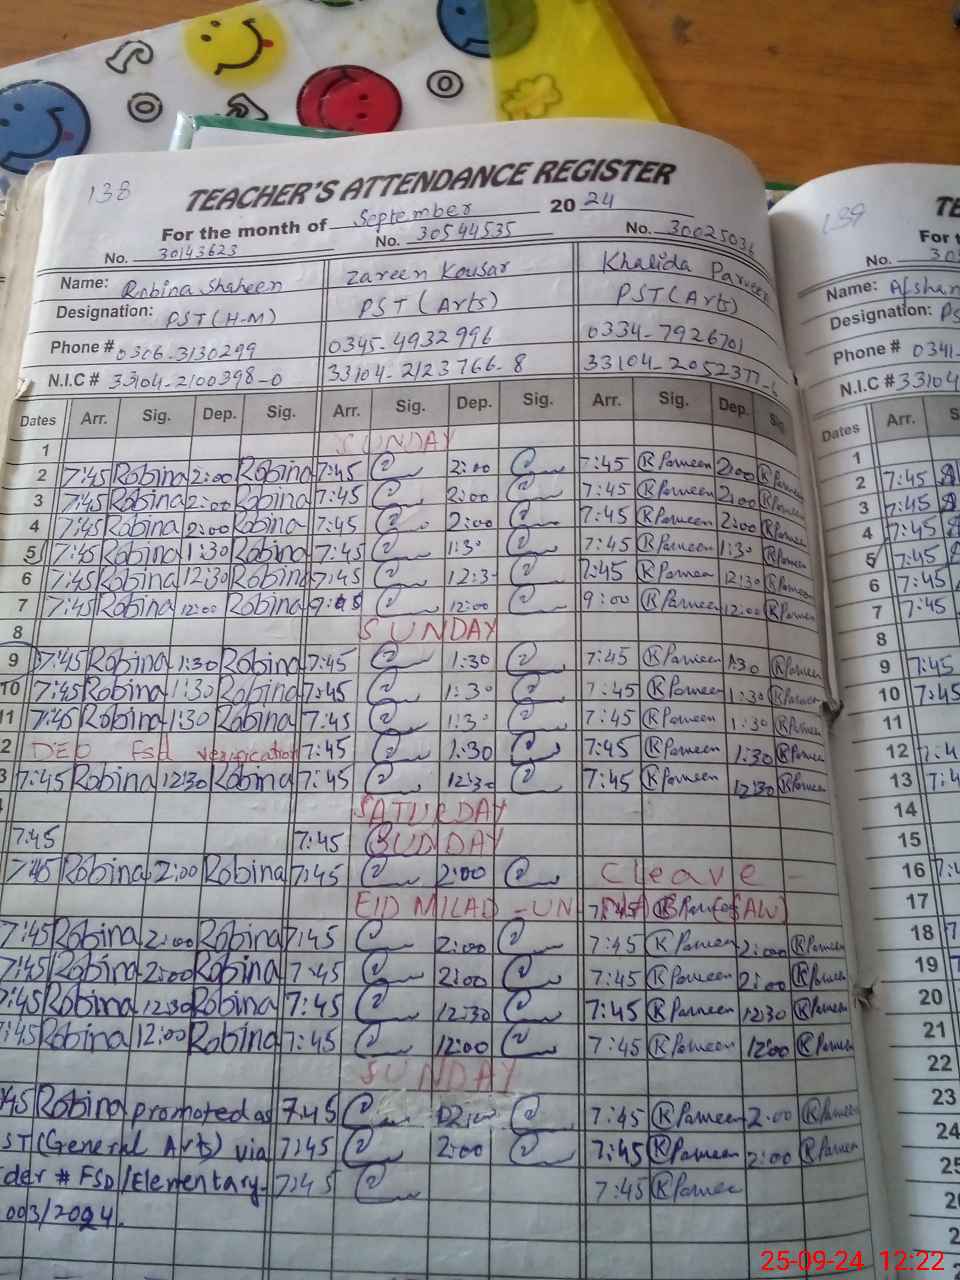 138
TEACHER'S ATTENDANCE REGISTER
For the month of September 2024
No. 30143623 No. 30544535 No. 30025036
Name: Robina Shaheen Zareen Kousar Khalida Parveen
Designation: PST (H-M) PST (Arts) PST (Arts)
Phone # 0306-3130299 0345-4932996 0334-7926701
N.I.C # 33104-2100398-0 33104-2123766-8 33104-2052377-6
Dates Arr. Sig. Dep. Sig. Arr. Sig. Dep. Sig. Arr. Sig. Dep. Sig
1 SUNDAY
2 7:45 Robina 2:00 Robina 7:45 2:00 7:45 K Parveen 2:00 K Parveen
3 7:45 Robina 2:00 Robina 7:45 2:00 7:45 K Parveen 2:00 K Parveen
4 7:45 Robina 2:00 Robina 7:45 2:00 7:45 K Parveen 2:00 K Parveen
5 7:45 Robina 1:30 Robina 7:45 1:30 7:45 K Parveen 1:30 K Parveen
6 7:45 Robina 12:30 Robina 7:45 12:30 7:45 K Parveen 12:30 K Parveen
7 7:45 Robina 12:00 Robina 12:00 9:00 K Parveen 12:00 K Parveen
8 SUNDAY
9 7:45 Robina 1:30 Robina 7:45 1:30 7:45 K Parveen 1:30 K Parveen
10 7:45 Robina 1:30 Robina 7:45 1:30 7:45 K Parveen 1:30 K Parveen
11 7:45 Robina 1:30 Robina 7:45 1:30 7:45 K Parveen 1:30 K Parveen
2 DEO Fsd verification 7:45 1:30 7:45 K Parveen 1:30 K Parveen
3 7:45 Robina 12:30 Robina 7:45 12:30 7:45 K Parveen 12:30 K Parveen
SATURDAY
7:45 7:45 SUNDAY
7:45 Robina 2:00 Robina 7:45 2:00 C leave
EID MILAD-UN 7:45 K (SAW)
7:45 Robina 2:00 Robina 7:45 2:00 7:45 K Parveen 2:00 K Parveen
7:45 Robina 2:00 Robina 7:45 2:00 7:45 K Parveen 2:00 K Parveen
7:45 Robina 12:30 Robina 7:45 12:30 7:45 K Parveen 12:30 K Parveen
7:45 Robina 12:00 Robina 7:45 12:00 7:45 K Parveen 12:00 K Parveen
SUNDAY
45 Robina promoted as 7:45 7:45 K Parveen 2:00 K Parveen
ST (General Arts) via 7:45 2:00 7:45 K Parveen 2:00 K Parveen
der # FSD/Elementary- 7:45 7:45 K Parvee
003/2024.
139
TE
For t
No. 30
Name: Afshan
Designation: PS
Phone # 0341-
N.I.C # 33104
Dates Arr. S
1
2 7:45
3 7:45
4 7:45
5 7:45
6 7:45
7 7:45
8
9 7:45
10 7:45
11
12 7:4
13 7:4
14
15
16 7:
17
18
19
20
21
22
23
24
25
2
2
25-09-24 12:22